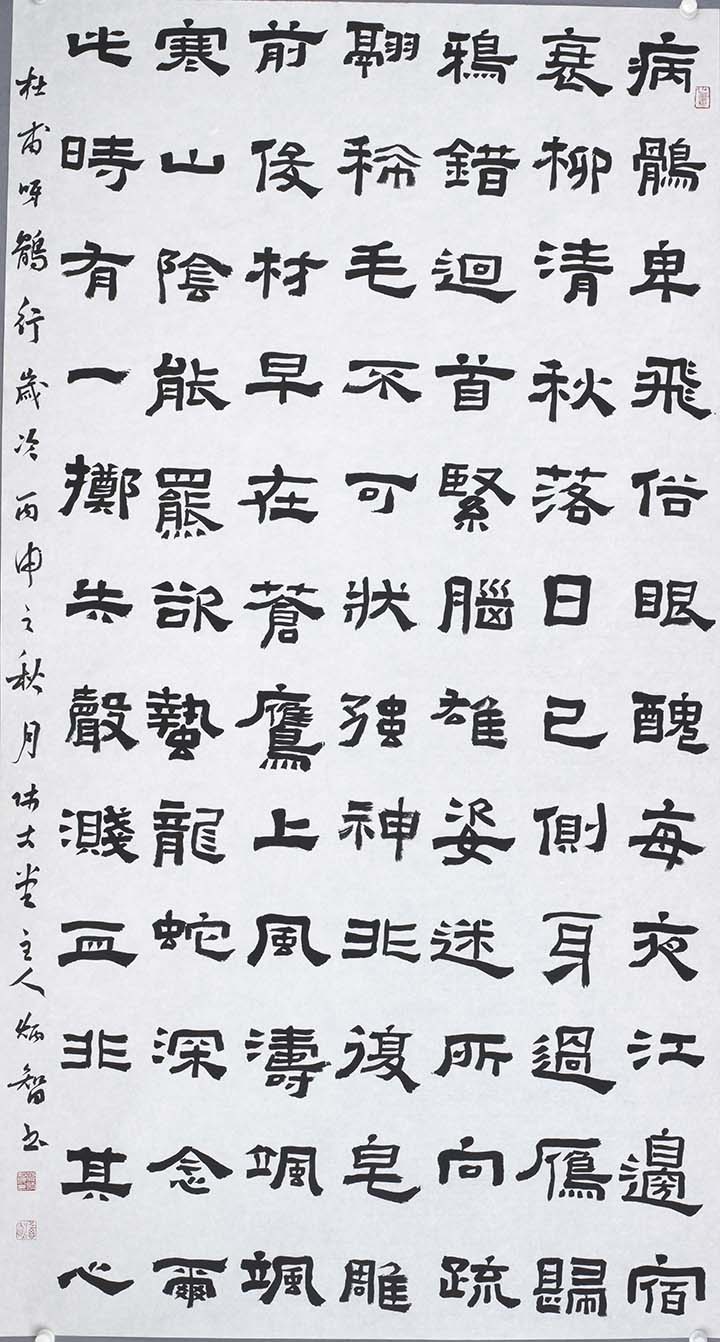 病鶻卑飛俗眼醜每夜江邊宿
衰柳清秋落日已側身過鴈歸
鴉錯迴首緊腦雄姿迷所向疏
翮稀毛不可狀強神非復皂雕
前俊材早在蒼鷹上風濤颯颯
寒山陰能羆欲蟄龍蛇深念爾
此時有一擲失聲濺血非其心
杜甫呀鶻行歲次丙申之秋月堂主人炳智書